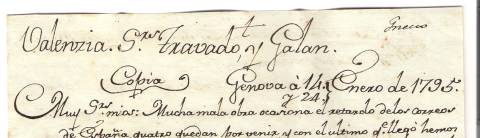 Enero
Valenzia. Sres Travado, y Galan.
Copia Genova à 14 Enero de 1795.
y 24
Muy Sres mios: Mucha mala obra ocasiona el retardo de los correos
de España quatro quedan por venir y con el ultimo q.e llegó hemos